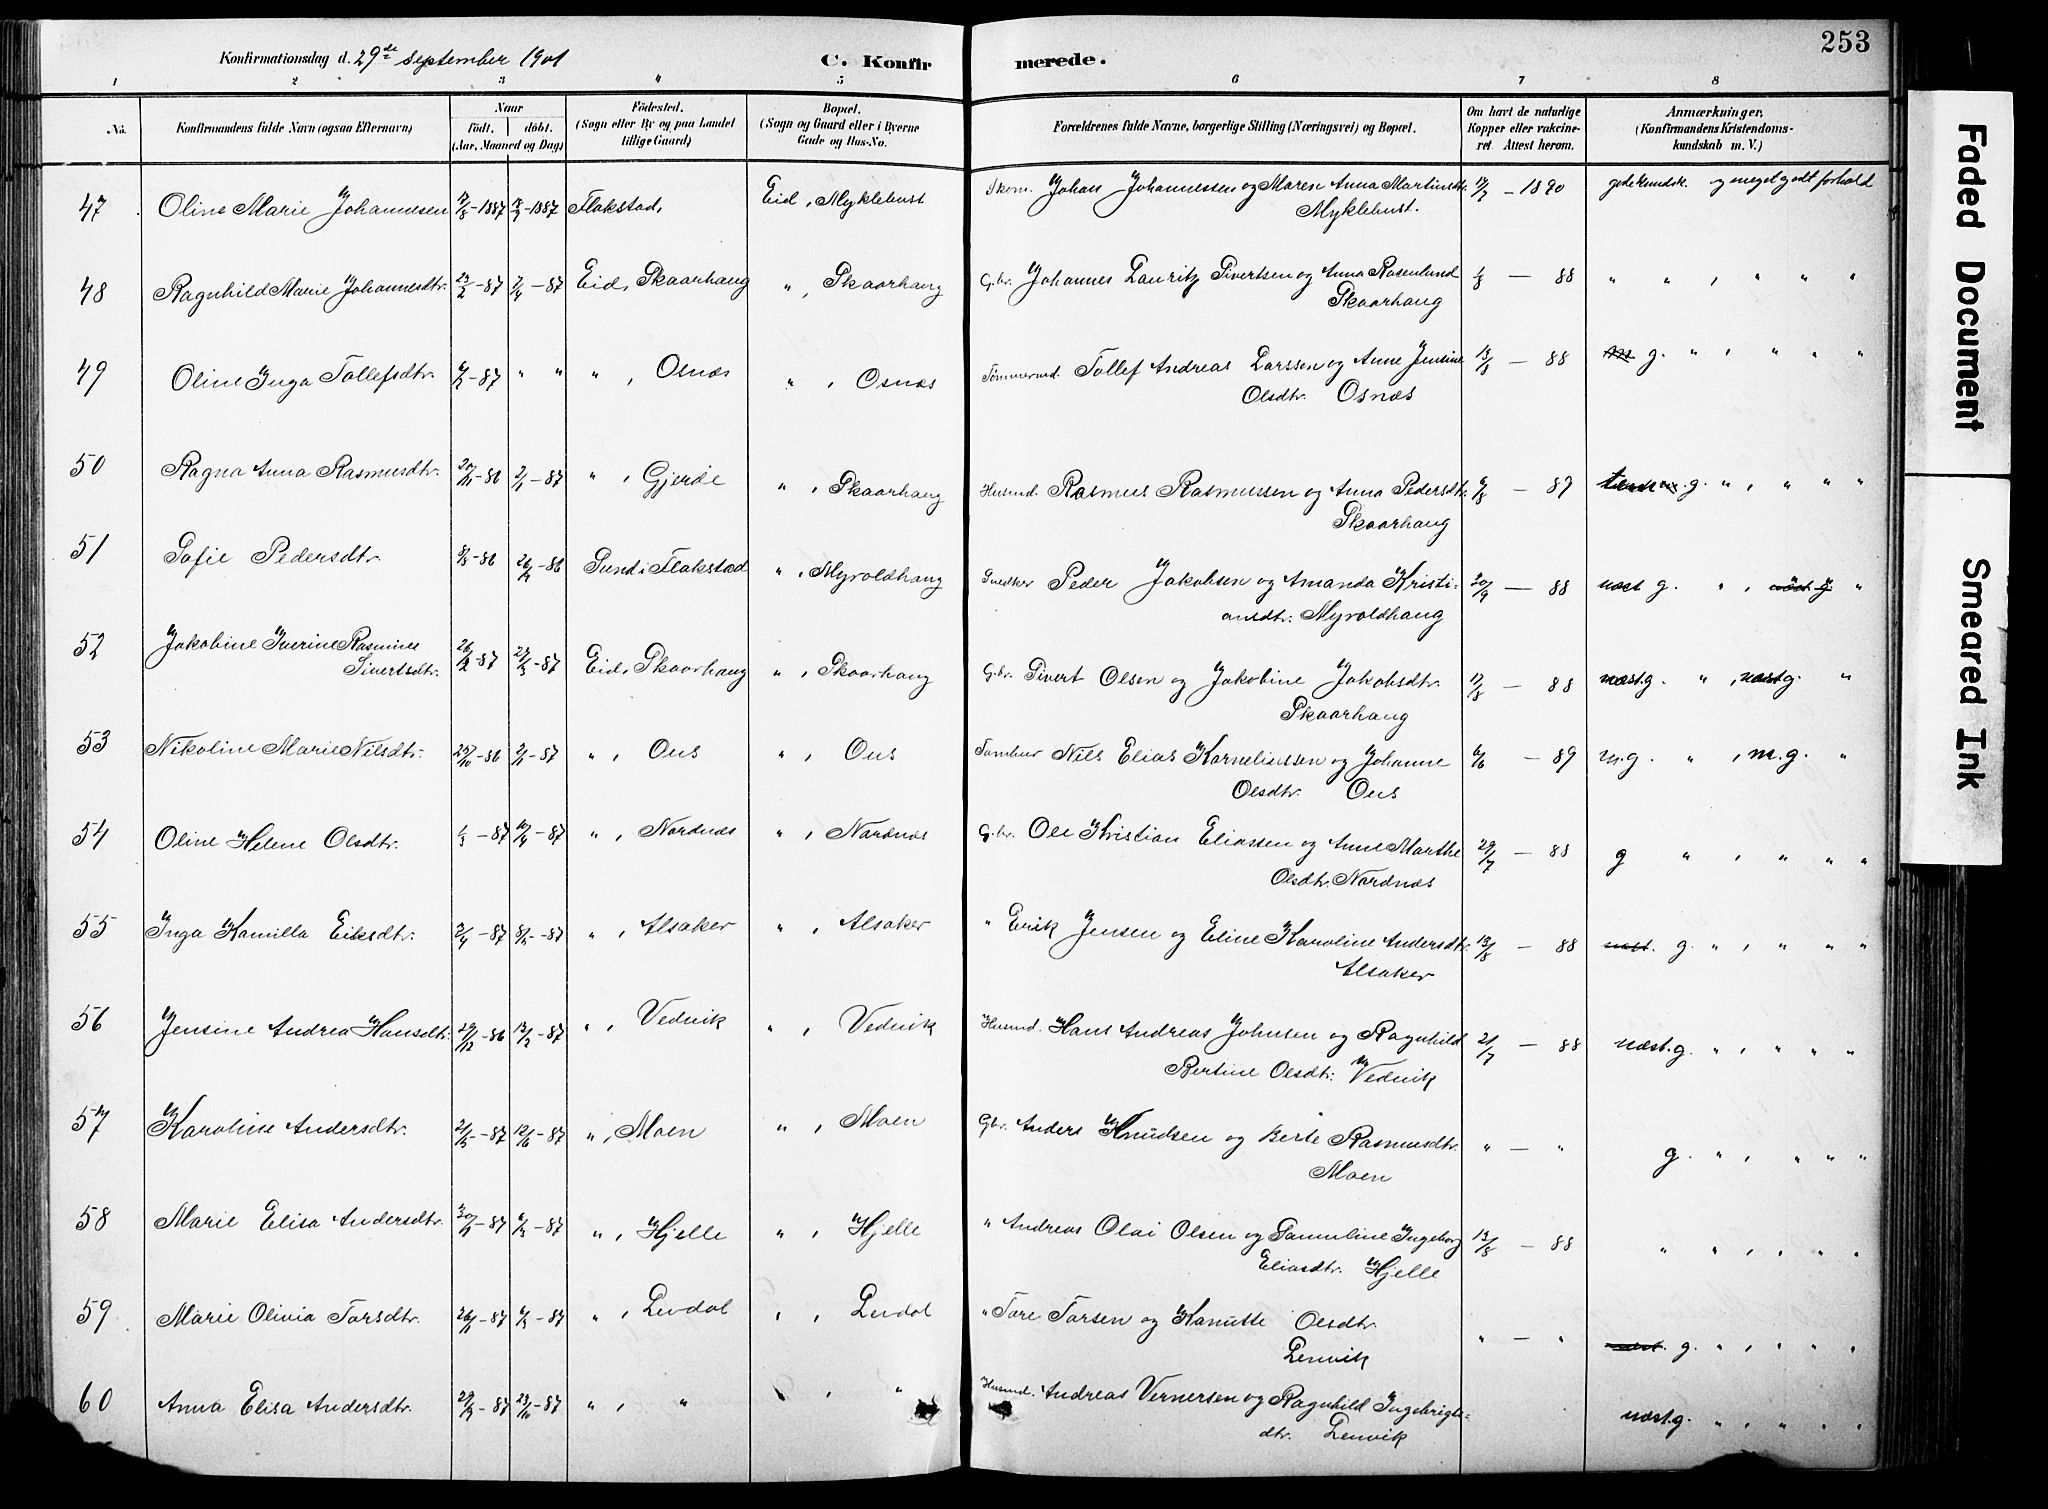 Konfirmationsdag d. 29de september 1901 C. Konfir merede. 253
1 2 3 " 5 6 7 8
No. Konfirmandens fulde Navn (ogsaa Efternavn) Naar födt. döbt. (Aar, Maaned og Dag) Födested. (Sogn eller By og paa Landet tillige Gaard) Bopæl. (Sogn og Gaard eller i Byerne Gade og Hus-No. Forældrenes fulde Navne, borgerlige Stilling (Næringsvei) og Bopæl. Om havt de naturlige Kopper eller vakcineret. Attest herom. Anmærkninger. (Konfirmandens Kristendomskundskab m. V.)
47 Oline Marie Johannesen -1887 -1887 Flakstad, Eid, Myklebust Skom. Johan Johannessen og Maren Anna Martinsdtr. - 1890 gode kundsk. og meget godt forhold
Myklebust.
48 Ragnhild Marie Johannesdtr. 23/2-87 -87 Eid, Skaarhaug ", Skaarhaug G.br. Johannes Lauritz Sivertsen og Anna Rosenlund — 88 " " , " " "
Skaarhaug
49 Oline Inga Tollefsdtr. -87 " " ", Osnæs ", Osnæs Tømmermd. Tollef Andreas Larssen og Anne Jensine 13/8 — 88 g. " , " " "
Olsdtr. Osnæs
50 Ragna Anna Rasmusdtr. 20/11-86 2/1-87 ", Gjerde ", Skaarhaug Husmd. Rasmus Rasmussen og Anna Pedersdtr. — 87 g. " , " " "
Skaarhaug
51 Sofie Pedersdtr. -86 -86 Sund i Flakstad ", Myroldhaug Snedker Peder Jakobsen og Amanda Kristi- 30/9 — 88 næst g. " , næst. g "
ansdtr. Myroldhaug
52 Jakobine Iverine Rasmine 26/2-87 27/3-87 Eid, Skaarhaug ", Skaarhaug G.br. Sivert Olsen og Jakobine Jakobsdtr. 17/8 — 88 næst.g. " , næst g. "
Sivertsdtr.
Skaarhaug
53 Nikoline Marie Nilsdtr. 23/10-86 2/1-87 ", Ous ", Ous Nils Elias Korneliussen og Johanne — 89 m.g. " , m.g. "
Olsdtr. Ous
54 Oline Helene Olsdtr. 1/3-87 10/4-87 ", Nordnæs ", Nordnæs G.br. Ole Kristian Eliassen og Anne Marthe 29/7 — 88 g " , " " "
Olsdtr. Nordnæs
55 Inga Kamilla Eiksdtr. 2/4-87 8/5-87 ", Alsaker ", Alsaker " Erik Jensen og Eline Karoline Andersdtr. 13/8 — 88 næst. g. " , " " "
Alsaker
56 Jensine Andrea Hansdtr. 29/12-86 13/2-87 ", Vedvik ", Vedvik Husmd. Hans Andreas Johnsen og Ragnhild 21/7 — 88 næst.g. " , " " "
Bertine Olsdtr. Vedvik
57 Karoline Andersdtr. 21/5-87 12/6-87 ", Moen ", Moen Gbr. Anders Knudsen og Berte Rasmusdtr. " — " g. " , " " "
Moen
58 Marie Elisa Andersdtr. 30/1-87 6/3-87 ", Hjelle ", Hjelle " Andreas Olai Olsen og Samueline Ingeborg 13/8 — 88 " " , " "
Eliasdtr. Hjelle
59 Marie Olivia Torsdtr. 26/1-87 6/3-87 ", Levdal ", Levdal " Tore Torsen og Kanutte Olsdtr. " — " næst. g. " , " " "
Lenvik
60 Anna Elisa Andersdtr. 29/9-87 23/10-87 ", " , " Husmd. Andreas Vernersen og Ragnhild Ingebrigts- næst.g. " , " " "
dtr. Lenvik
Faded Document
Smeared Ink